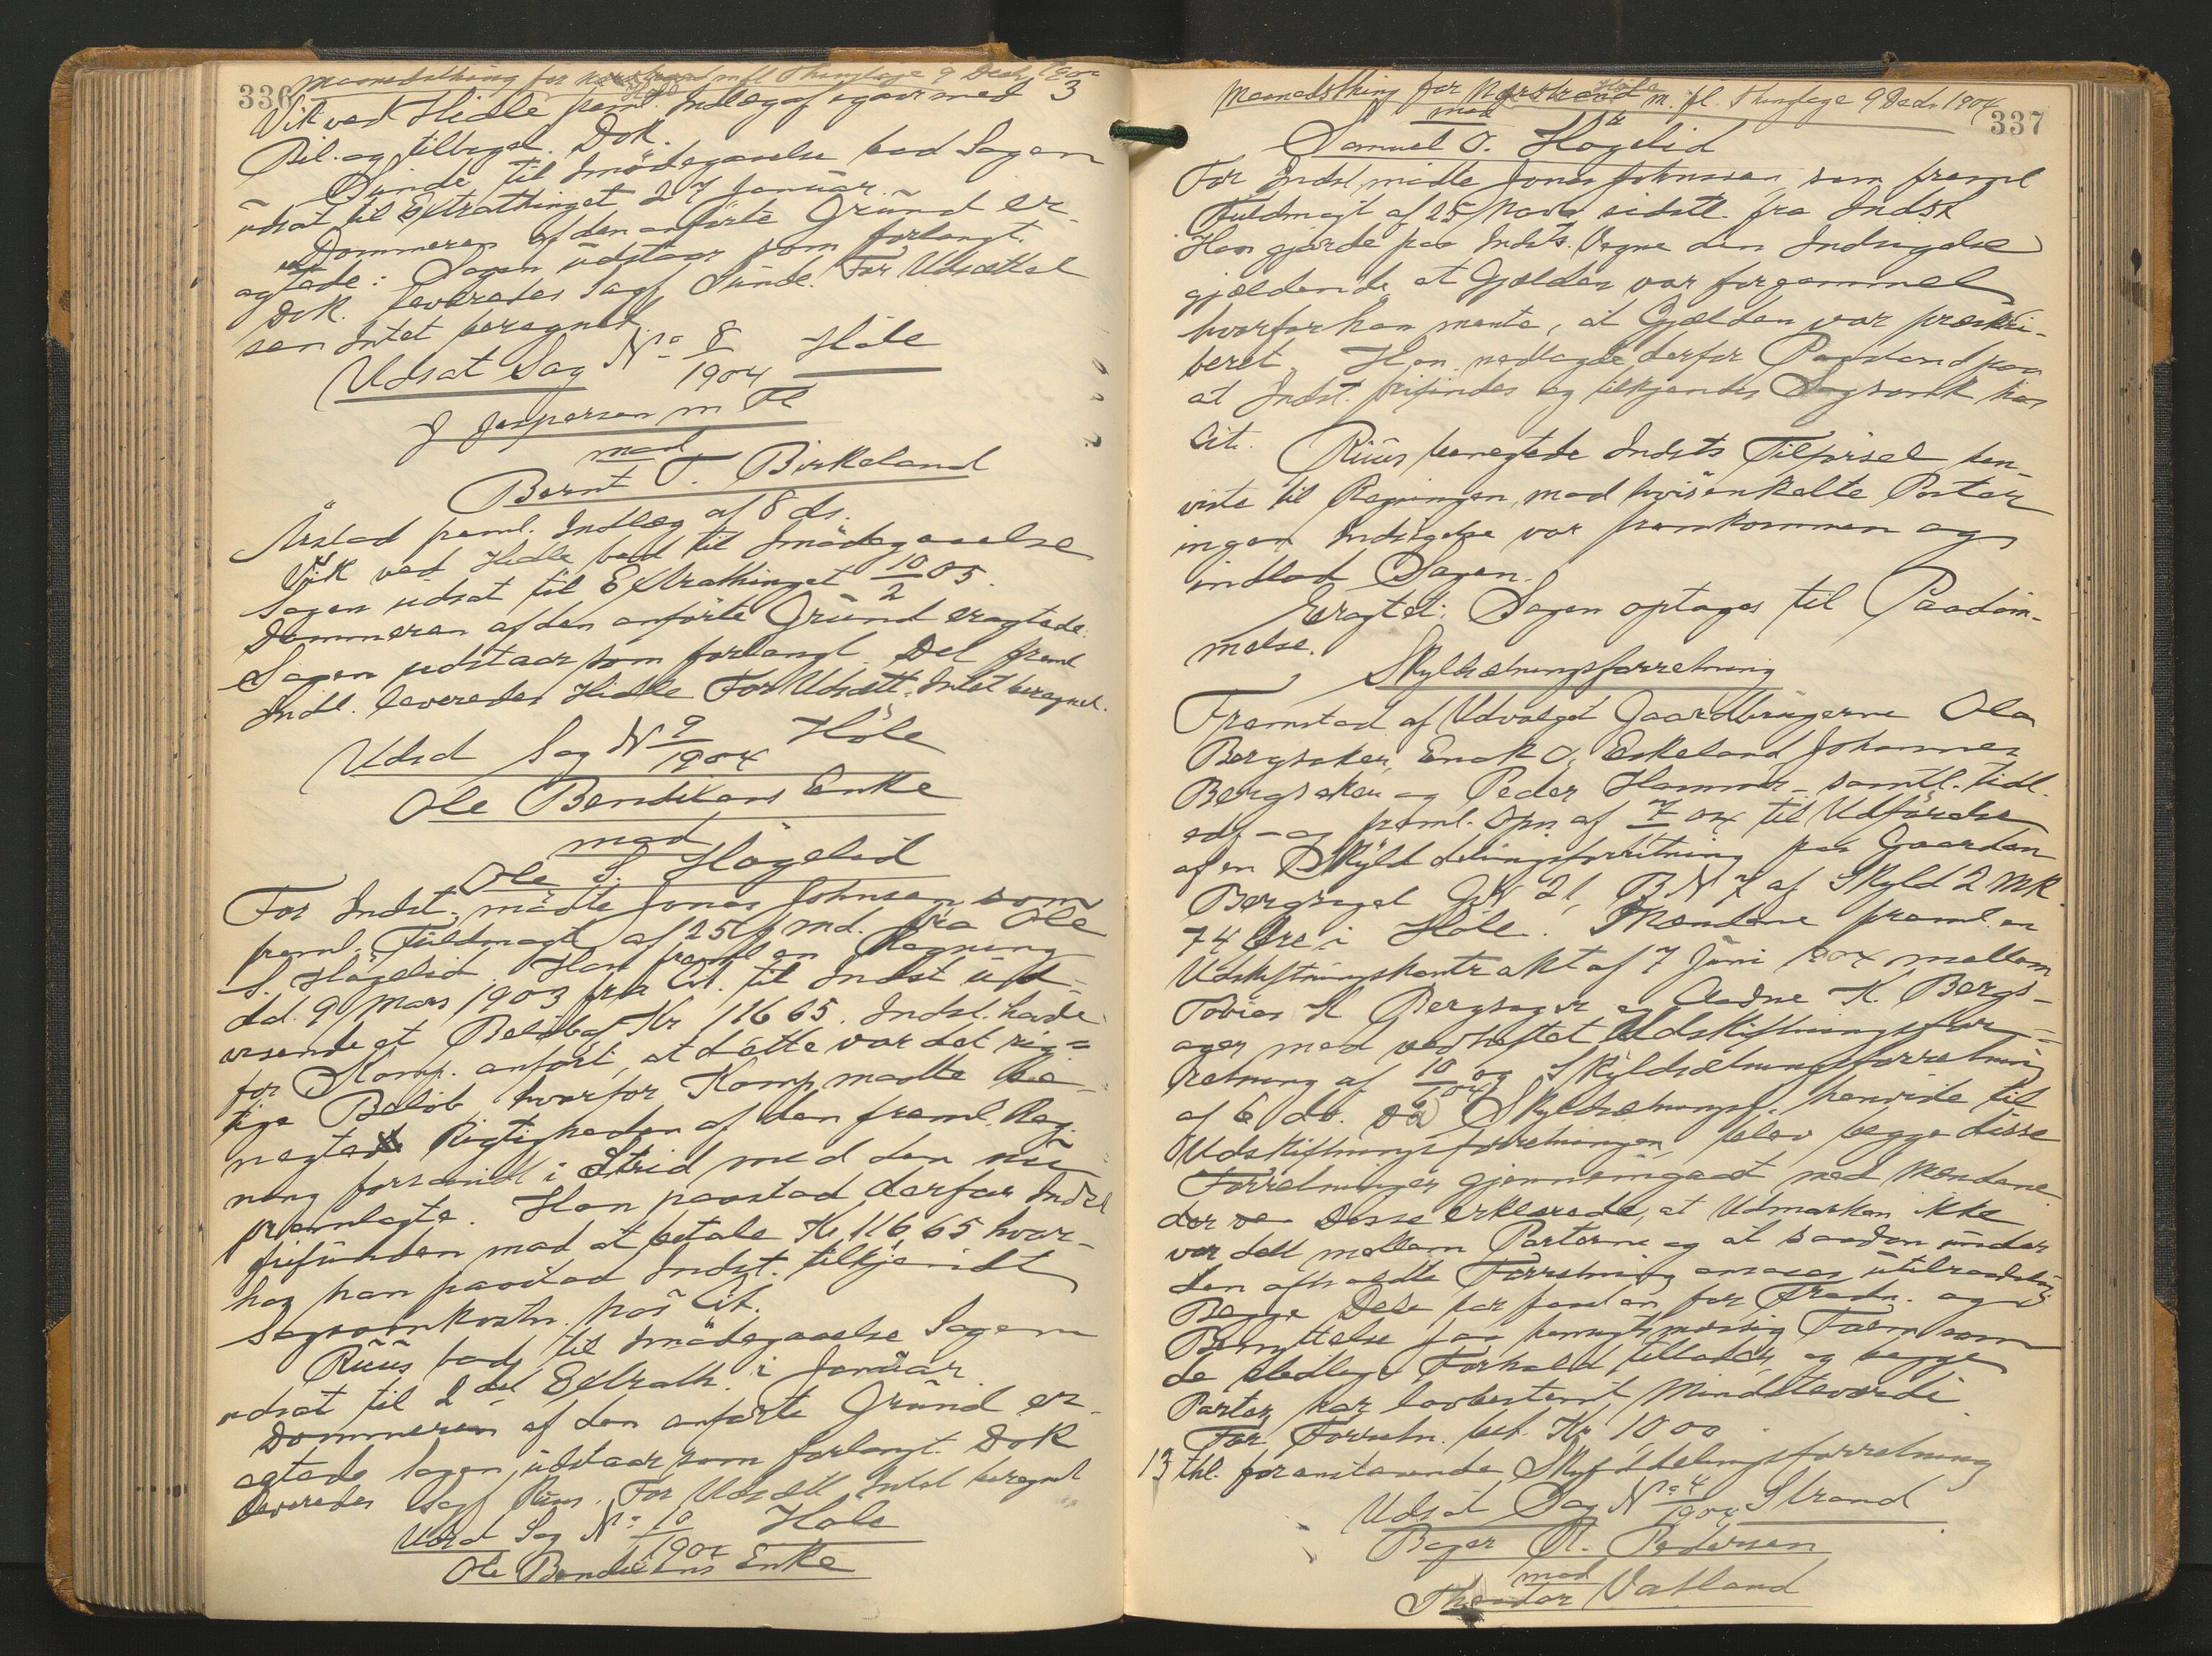 336
Maanedsthing for Nerstrand m fl Thinglage 9 Decbr 1904
Høle
3
Vik ved Hidle freml. Indlæg af igaar med
Bil. og tilbagel. Dok.
Sunde til Imödegaaelse bad Sagen
udsat til Extrathinget 27 Januar.
Dommeren af den anförte Grund er-
agtede: Sagen udstaar som forlangt.
Dok. leveredes Sagf Sunde. For Udsættel
sen Intet beregnet.
Udsat Sag No 8/1904 Höle
J Jespersen m Fl
mod
Bernt T. Birkeland
Årstad freml. Indlæg af 8 ds.
Vik ved Hidle bad til Imödegaaelse
Sagen udsat til Extrathinget 10/2 05.
Dommeren af den anförte Grund eragtede:
Sagen udstaar som forlangt. Det freml
Indl. leveredes Hidle For Udsætt. Intet beregnet.
Udsat Sag N 9/1904 Höle
Ole Bendixens Enke
mod
Ole S. Högelid
For Indst. mödte Jonas Johnsen som
freml. Fuldmagt af 25 f md. fra Ole
S. Högelid. Han freml en Regning
dd. 9 Mars 1903 fra Cit. til Indst ud-
visende et Belöb af Kr 116 65. Indst. havde
for Komp. anfört, at dette var det rig-
tige Belöb hvorfor Komp maatte be-
negte Rigtigheden af den freml. Reg-
ning forsaavidt i Strid med den nu
fremlagte. Han paastod derfor Indst
frifunden mod at betale Kr 116,65 hvor-
hos han paastod Indst. tilkjendt
Sagsomkostn. hos Cit.
Ruus bad til Imödegaaelse Sagen
udsat til 2det Extrath. i Januar.
Dommeren af den anförte Grund er-
agtede Sagen udstaar som forlangt. Dok
leveredes Sagf Ruus. For Udsætt Intet beregnet
Udsat Sag No 10/1904 Höle
Ole Bendixens Enke
337
Maanedsthing for Nerstrand m. fl. Thinglage 9 Decbr 1904
Høle
mod
Samuel O. Högelid
For Indst. mödte Jonas Johnsen, som freml
Fuldmagt af 25 Novbr sidstl. fra Indst
Han gjorde paa Indsts. Vegne den Indsigelse
gjældende, at Gjælden var forgammel
hvorfor han mente, at Gjælden var præskri-
beret. Han nedlagde derfor Paastand paa
at Indst. frifindes og tilkjendes Sagsomk hos
Cit.
Ruus benegtede Indsts Tilförsel, hen-
viste til Regningen, mod hvis enkelte Poster
ingen Indsigelse var fremkommen og
indlod Sagen.
Eragtet: Sagen optages til Paadöm-
melse.
Skyldsætningsforretning
Fremstod af Udvalget Gaardbrugerne Ola
Bergsaker, Enok O. Eskeland Johannes
Bergsaker og Peder Hammer - samtl. tidl.
edf - og freml. Opn af 7/7 04 til Udförelse
af en Skylddelingsforretning paa Gaarden
Bergsagel GN 21, BN 7 af Skyld 2 Mk
74 Øre i Höle. Mændene freml. en
Udskiftningskontrakt af 7 Juni 1904 mellem
Tobias K Bergsager og Aadne K. Bergs-
ager med vedheftet Udskiftningsfor-
retning af 10/6 04 og Skyldsætningsforretning
af 6 ds. Da Skyldsætningsf. henviste til
Udskiftningsforretningen, blev begge disse
Forretninger gjennemgaaet med Mændene
der Disse erklærede, at Udmarken ikke
var delt mellem Parterne og at saadan under
den afholdte Forretning ansaaes utilraadelig
Begge Dele har faaet en for Dredn. og
Benyttelse saa hensigtsmæssig Form som
de stedlige Forhold tillader, og begge
Parter har lovbestemt Mindsteværdi.
For Forretn. bet. Kr. 10 00.
13 thl. foranstaaende Skylddelingsforretning
Udsat Sag No 4/1904 Strand
Bager R. Pedersen
mod
Theodor Vatland